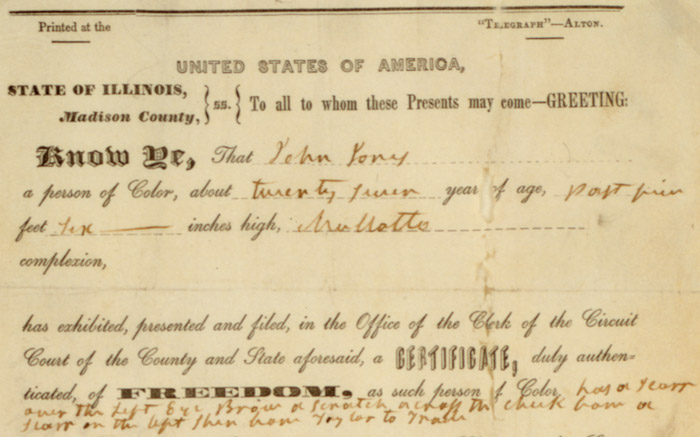 Printed at the "Telegraph"—Alton.
UNITED STATES OF AMERICA,
STATE OF ILLINOIS,
Madison County, } ss. { To all to whom these Presents may come—GREETING:
Know Ye, That John Jones
a person of Color, about twenty seven year of age,
feet six inches high, Mullatto
complexion,
has exhibited, presented and filed, in the Office of the Clerk of the Circuit
Court of the County and State aforesaid, a CERTIFICATE, duly authen-
ticated, of FREEDOM, as such person of Color, has a Scarr
over the Left Eye Brow a Scratch across the cheek bone a
Scarr on the left Shin bone